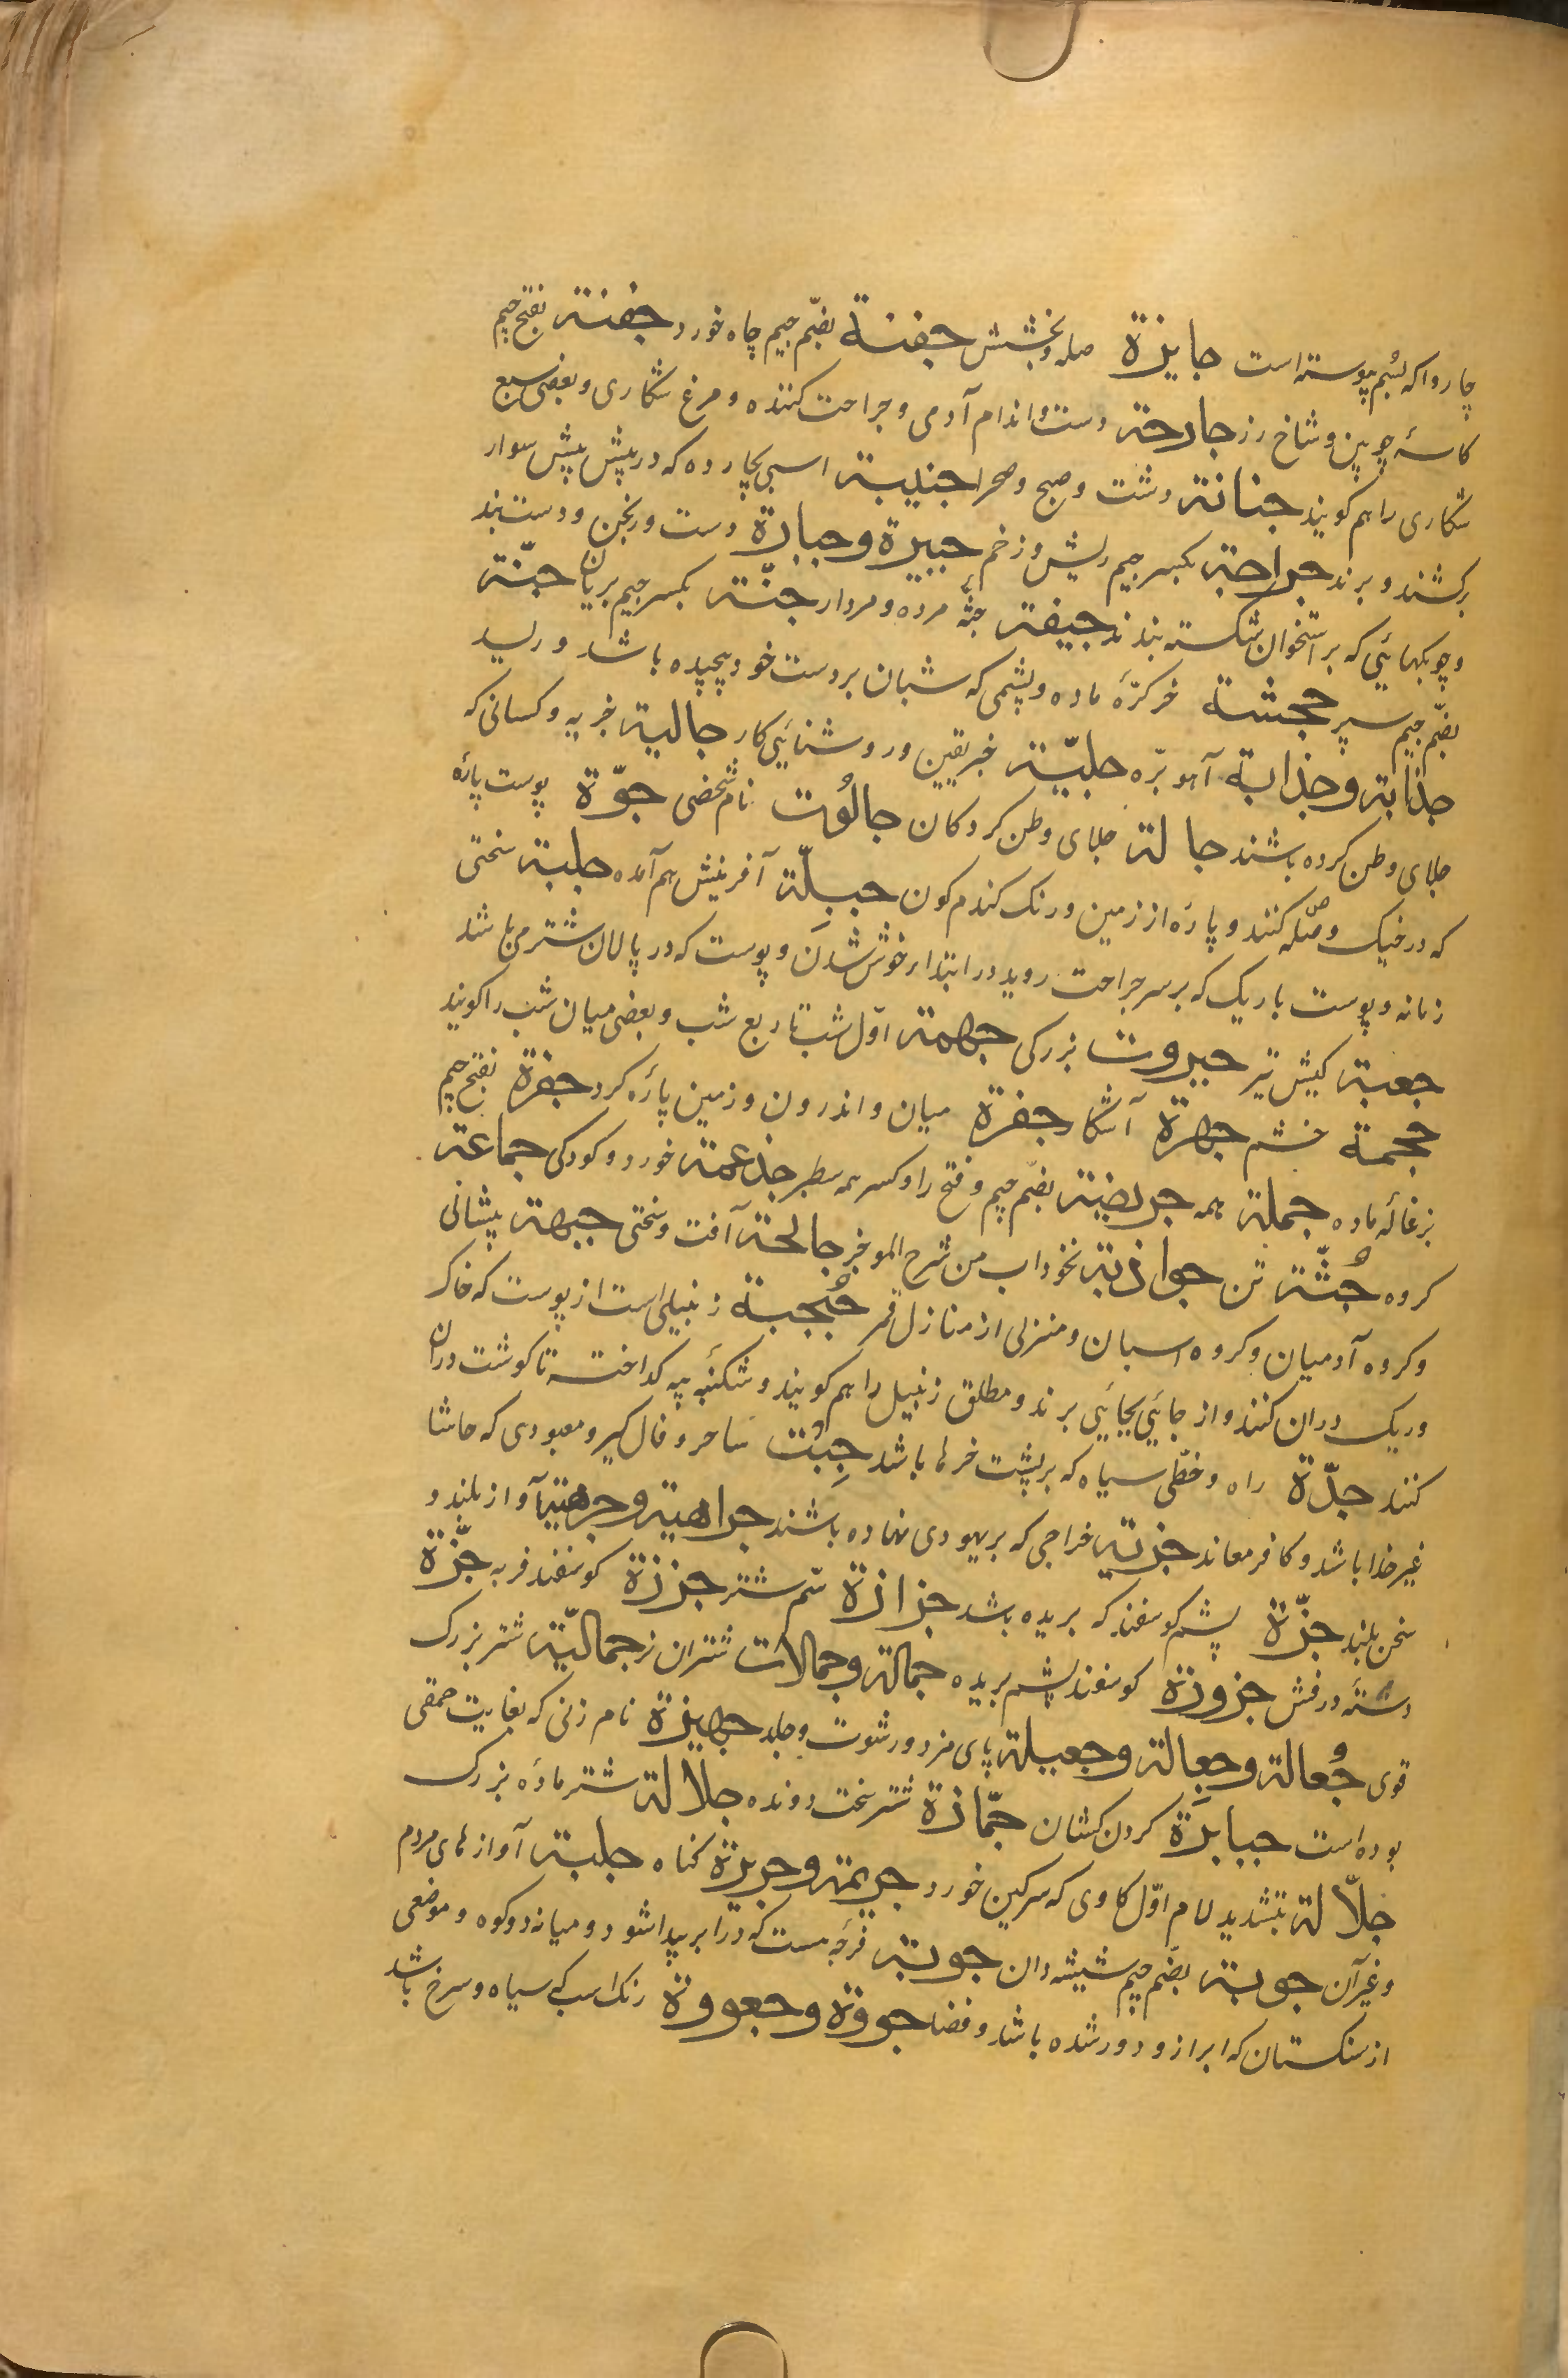 چاروا که بسُم پیوسته است جایزة صله و بخشش جفنة بضّم جیم چاه خورد جفنة بفتح جیم
کاسهٔ چوبین و شاخ رز جارحة دست و اندام آدمی و جراحت کننده و مرغ شکاری و بعضی سبع
شکاری را هم کویند جنانة دشت و صبح و صحرا جنیبة اسبی بچارده که در پیش پیش سوار
برکشند و برند جراحة بکسر جیم ریش و زخم جبیرة و جبارة دست ورنجن و دست بند
و چوبکهائی که بر استخوان شکسته بندند جیفة جثّهٔ مرده و مردار جنّة بکسر جیم پریان جنّة
بضّم جیم سپر جحشة خر کرّهٔ ماده و پشمی که شبان بر دست خود پیچیده باشد و ریسد
جذابة و جذابة آهو برّه جلیّة خبر یقین و روشنائی کار جالیة خریه و کسانی که
جلای وطن کرده باشند جالة جلای وطن کردکان جالُوت نام شخصی جوّة پوست پارهٔ
که در خیک وصّله کنند و پارهٔ از زمین و رنک کندم کون جبِلّة آفرینش هم آمده جلبة سختی
زمانه و پوست باریک که بر سر جراحت روید در ابتدا خوش شدن و پوست که در پالان شتر می باشد
جعبة کیش تیر جبروت بزرکی جهمة اوّل شب تا ربع شب و بعضی میان شب را کویند
جحمة خشم جهرة آشکار جفرة میان و اندرون و زمین پارهٔ کرد جفرة بفتح جیم
بزغالهٔ ماده جملة همه جربضیة بضّم جیم و فتح را و کسر همه سطبر جذعمة خورد و کودکی جماعة
کروه جُثّة تن جواذبة نخوداب من شرح الموجز جالحة آفت و سختی جبهة پیشانی
و کروه آدمیان و کروه اسبان و منزلی از منازل قمر جُبجبة زنبیلی است از پوست که خاک
و ریک دران کنند و از جائی بجائی برند و مطلق زنبیل را هم کویند و شکنبهٔ پیه کداخته تا کوشت دران
کنند جدّة راه و خطّی سیاه که بر پشت خرها باشد جِبْت ساحر و فال کیر و معبودی که حاشا
غیر خدا باشد و کافر معاند جزیة خراجی که بر یهودی نهاده باشند جراهیة و جرهیة آواز بلند و
سخن بلند جزّة پشم کوسفند که بریده باشد جزازة سّم شتر جززة کوسفند فربه جزّة
دستهٔ درفش جزوزة کوسفند پشم بریده جمالة و جمالات شتران نر جمالیّة شتر بزرک
قوی جُعالة و جعِالة و جعیلة پای مزد و رشوت و جلد جهیزة نام زنی که بغایت حمقی
بوده است جبابرَة کردن کشان جمّازة شتر سخت دونده جلالة شتر مادهٔ بزرک
جلّالة بتشدید لام اوّل کاوی که سرکین خورد جریمة و جریرة کناه جلبة آوازهای مردم
و غیر آن جوبة بضّم جیم شیشه دان جوبة فرجه ست که در ابر پیدا شود و میانه دو کوه و موضعی
از سنکستان که ابر از و دور شده باشد و فضا جووة و جعووة رنک اسب که سیاه و سرخ باشد